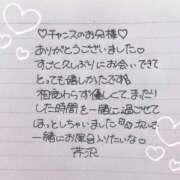 ♡チャンスのお兄様♡
ありがとうございました。
すごく久しぶりにお会いできて
とっても嬉しかったです
相変わらず優しくて、まだり
した時間を一緒に過ごせて
ほっとしちゃいました
一緒にお風呂入りたいな♡
芹沢